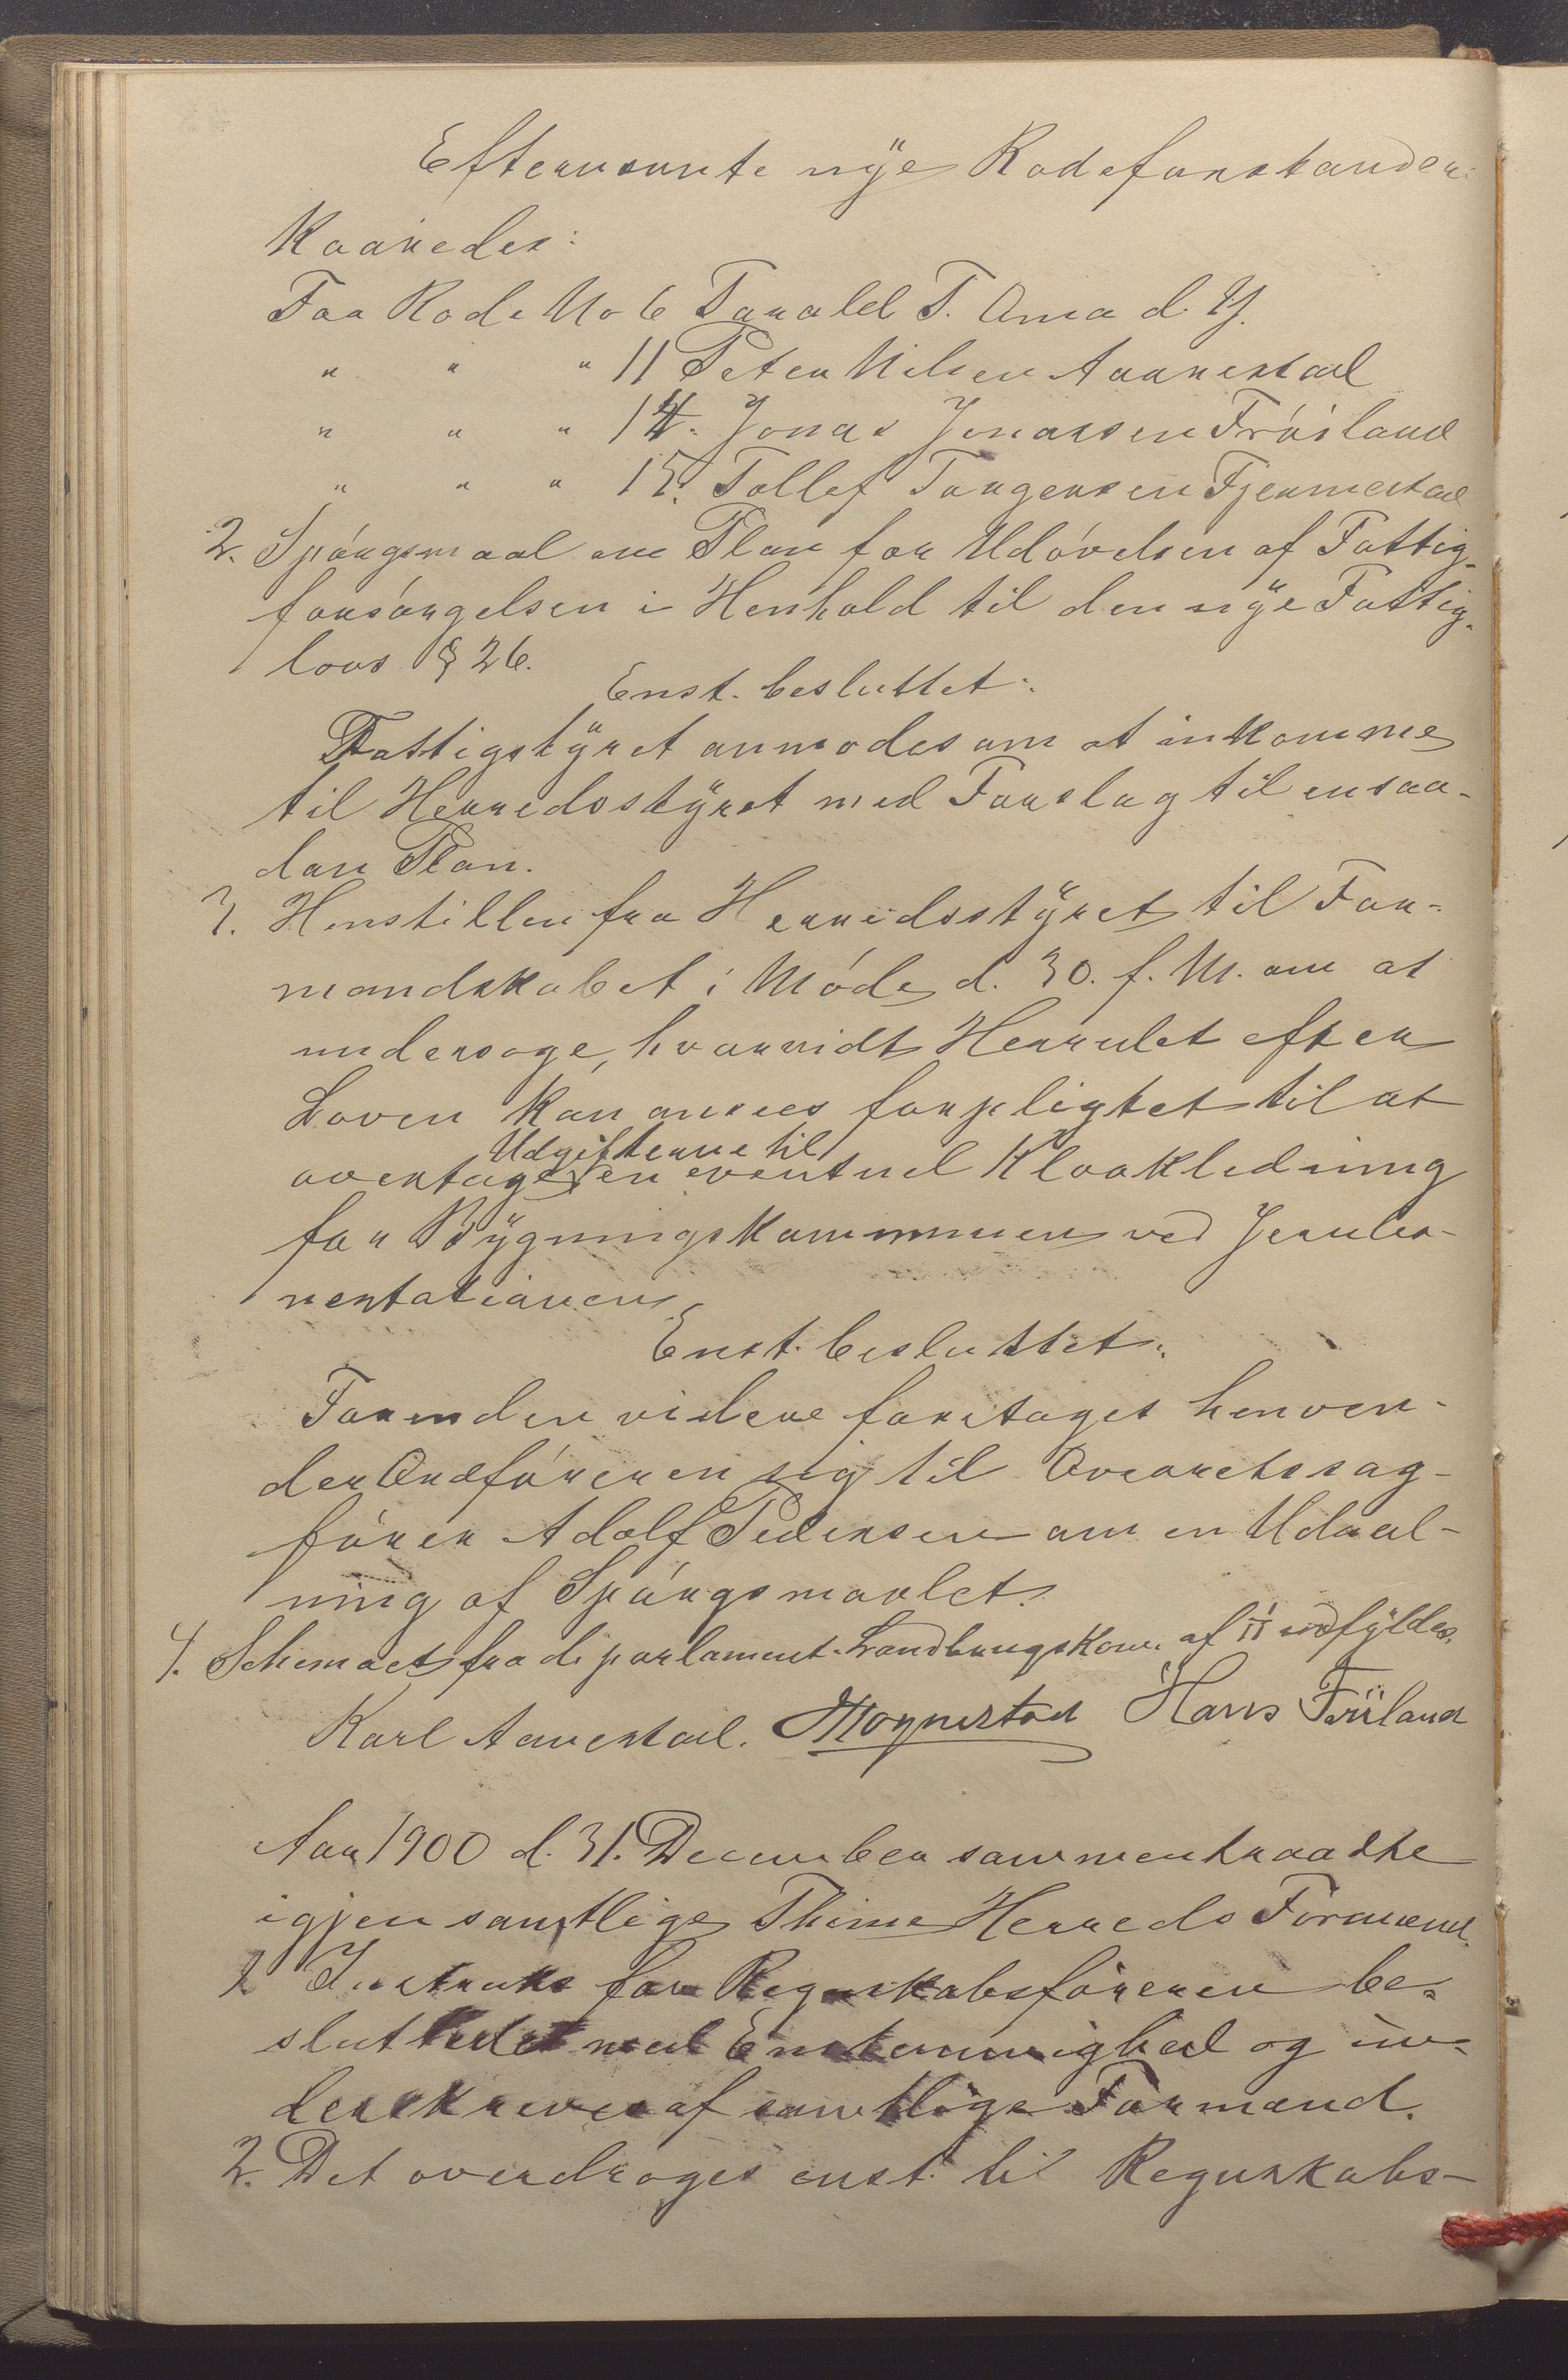 Efternævnte nye Rodeforstandere
Kaaredes:
For Rode No 6 Torald T. Ama d. Y.
" " " 11 Peter Nilsen Aanestad
" " " 14. Jonas Jonassen Fröiland
" " " 15. Tollef Torgersen Fjermestad
2. Spörgsmaal om Plan for Udövelsen af Fattig-
forsörgelsen i Henhold til den nye Fattig-
lovs § 26.
Enst. besluttet:
Fattigstyret anmodes om at inkomme
til Herredsstyret med Forslag til en saa-
dan Plan.
3. Henstillen fra Herredsstyret til For-
mandskabet i Möde d. 30. f. M. om at
undersøge, hvorvidt Herredet efter
Loven kan ansees forpligtet til at
Udgifterne til
overtage en eventuel Kloakledning
for Bygningskommunen ved Jernba-
nestationen
Enst. besluttet:
Forinden videre foretages henven-
der Ordföreren sig til Overretssag-
förer Adolf Pedersen om en Udtal-
ning af Spörgsmaalet.
4. Schemaet fra de parlament. Landbrugskom. af udfyldes.
Karl Aanestad. MHognestad Hans Fröiland
Aar 1900 d. 31. December sammentraadte
igjen samtlige Thime Herreds Formænd.
1 Instruks for Regnskabsföreren be-
sluttedes med Enstemmighed og un-
derskreves af samtlige Formænd.
2. Det overdroges enst. til Regnskabs-